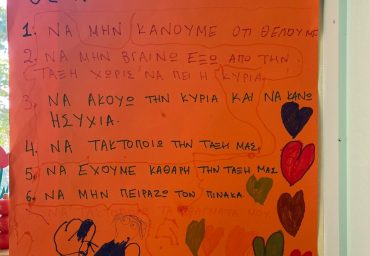 1. ΝΑ ΜΗΝ ΚΑΝΟΥΜΕ ΟΤΙ ΘΕΛΟΥΜΕ
2. ΝΑ ΜΗΝ ΒΓΑΙΝΩ ΕΞΩ ΑΠΟ ΤΗΝ
ΤΑΞΗ ΧΩΡΙΣ ΝΑ ΠΕΙ Η ΚΥΡΙΑ.
3. ΝΑ ΑΚΟΥΩ ΤΗΝ ΚΥΡΙΑ ΚΑΙ ΝΑ ΚΑΝΩ
ΗΣΥΧΙΑ.
4. ΝΑ ΤΑΚΤΟΠΟΙΩ ΤΗΝ ΤΑΞΗ ΜΑΣ
5. ΝΑ ΕΧΟΥΜΕ ΚΑΘΑΡΗ ΤΗΝ ΤΑΞΗ ΜΑΣ
6. ΝΑ ΜΗΝ ΠΕΙΡΑΖΩ ΤΟΝ ΠΙΝΑΚΑ